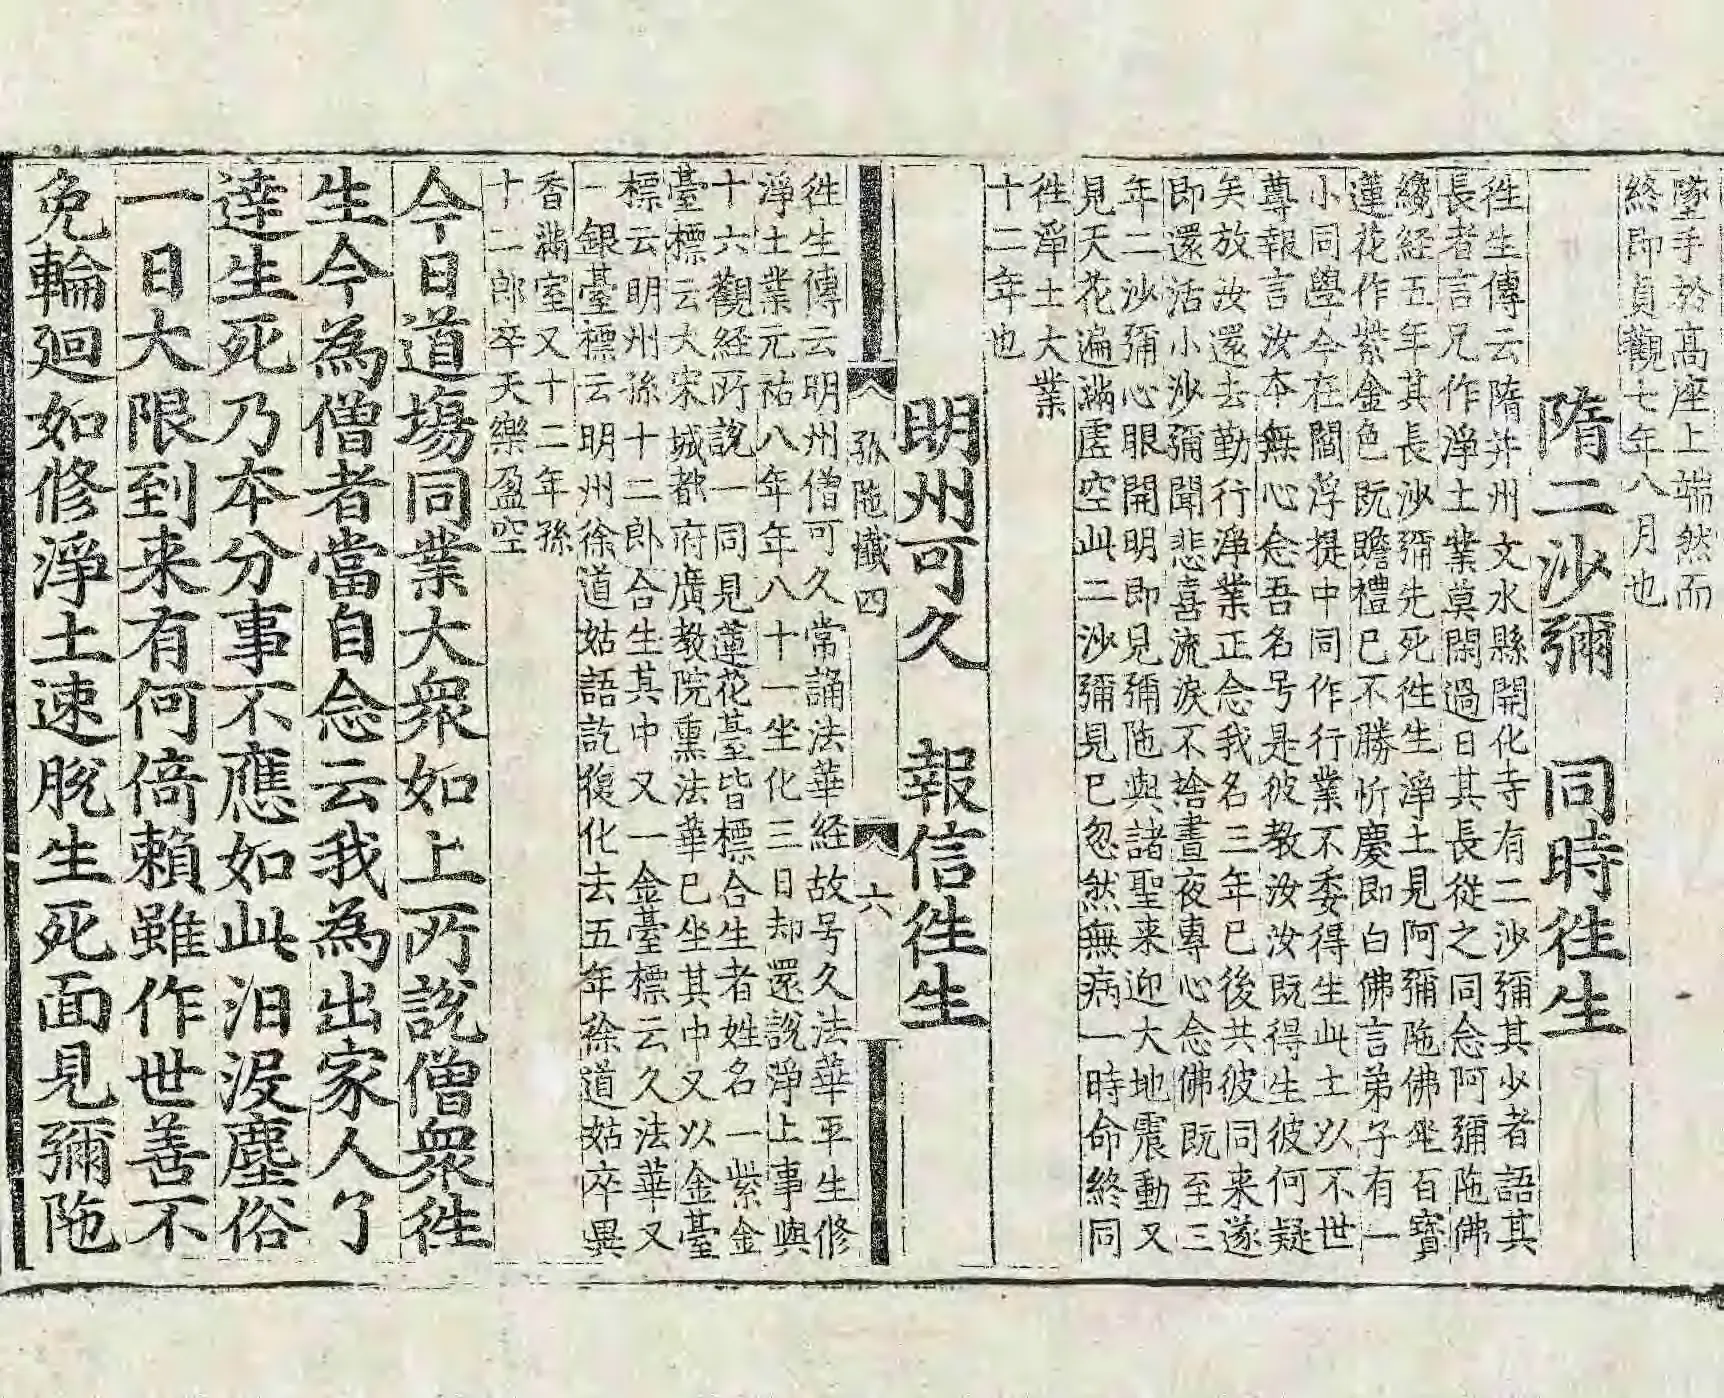 墜手於高座上端然而
終即貞觀七年八月也
隋二沙彌 同時徃生
徃生傳云隋并州文水縣開化寺有二沙彌其少者語其
長者言兄作淨土業莫閑過日其長從之同念阿彌陁佛
纔經五年其長沙彌先死徃生淨土見阿彌陁佛坐百寶
蓮花作紫金色既瞻禮已不勝忻慶即白佛言弟子有一
小同學今在閻浮提中同作行業不委得生此土以不世
尊報言汝夲無心念吾名号是彼教汝汝既得生彼何疑
矣放汝還去勤行淨業正念我名三年已後共彼同来遂
即還活小沙彌聞悲喜流淚不捨晝夜專心念佛既至三
年二沙彌心眼開明即見彌陁與諸聖来迎大地震動又
見天花遍滿虛空此二沙彌見已忽然無病一時命終同
徃淨土大業
十二年也
明州可久 報信徃生
弥陁懺四 六
徃生傳云明州僧可久常誦法華経故号久法華平生修
淨土業元祐八年年八十一坐化三日却還說淨土事與
十六觀経所說一同見蓮花臺皆標合生者姓名一紫金
臺標云大宋城都府廣教院熏法華已坐其中又以金臺
標云明州孫十二郎合生其中又一金臺標云久法華又
一銀臺標云明州徐道姑語訖復化去五年徐道姑卒異
香滿室又十二年孫
十二郎卒天樂盈空
今日道場同業大衆如上所說僧衆徃
生今為僧者當自念云我為出家人了
達生死乃本分事不應如此汨沒塵俗
一日大限到来有何倚賴雖作世善不
免輪迴如修淨土速脫生死面見彌陁